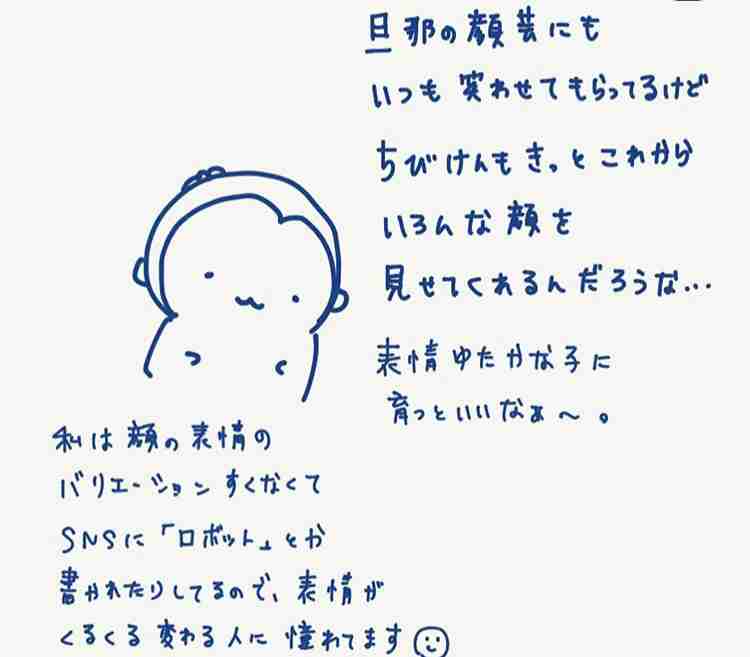 旦那の顔芸にも
いつも笑わせてもらってるけど
ちびけんもきっとこれから
いろんな顔を
見せてくれるんだろうな…
表情ゆたかな子に
育っといいなぁ〜。
私は顔の表情の
バリエーションすくなくて
SNSに「ロボット」とか
書かれたりしてるので、表情が
くるくる変わる人に憧れてます